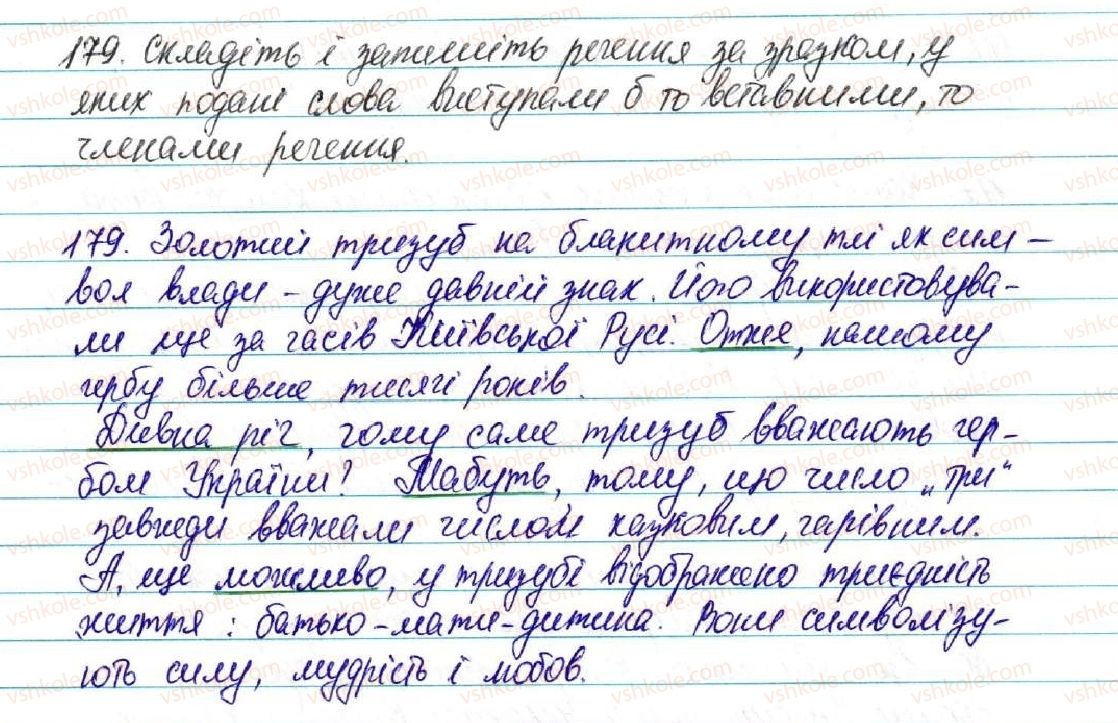 179. Складіть і запишіть речення за зразком, у
яких подані слова виступали б то вставними, то
членами речення.
179. Золотий тризуб на блакитному тлі як сим-
вол влади - дуже давній знак. Його використовува-
ли ще за часів Київської Русі. Отже, нашому
гербу більше тисячі років.
Дивна річ, чому саме тризуб вважають гер-
бом України? Мабуть, тому, що число „три"
завжди вважали числом казковим, чарівним.
А, ще можливо, у тризубі відображено триєдність
життя: батько-мати-дитина. Вони символізу-
ють силу, мудрість і любов.